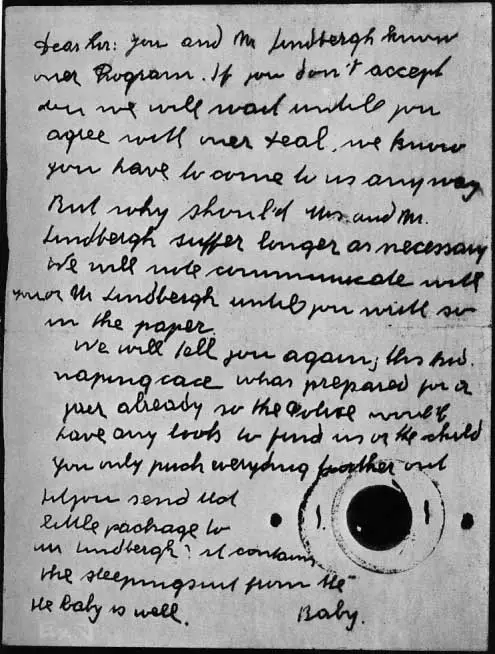 Dear Sir: You and Mr Lindbergh know
ouer Program. If you don't accept
den we will wait untill you
agree with ouer deal. we know
you have to come to us anyway
But why should Mrs. and Mr.
Lindbergh suffer longer as necessary
We will note communicate with
you or Mr Lindbergh untill you write so
in the paper.
We will tell you again; this kid.
naping cace whas prepared for a
year already so the Police would
have any look to find us or the child
You only puch everyding further out
did you send that
little package to
Mr Lindbergh? it contains
the sleepingsuit from the
Baby.
the baby is well.